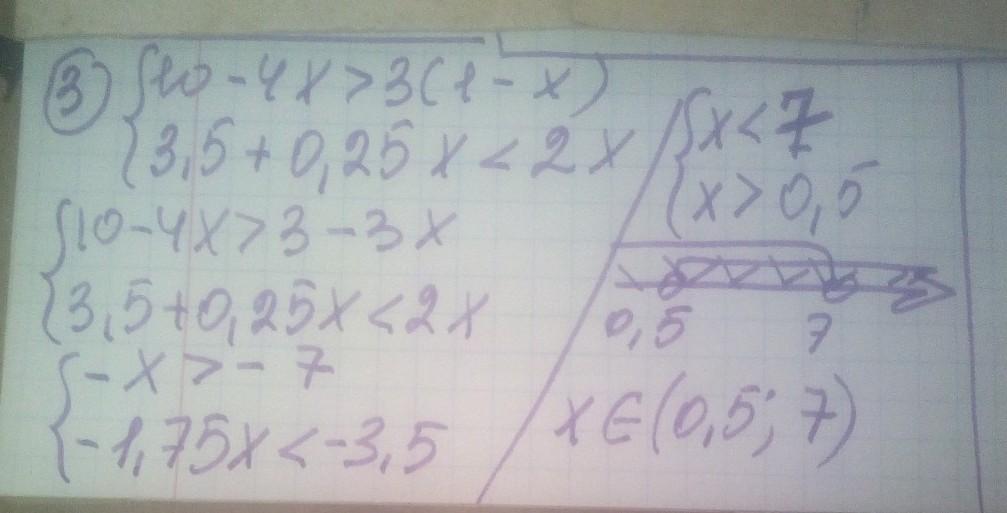 3) { 10 - 4x > 3(1 - x)
{ 3,5 + 0,25x < 2x
{ 10 - 4x > 3 - 3x
{ 3,5 + 0,25x < 2x
{ -x > -7
{ -1,75x < -3,5
{ x < 7
{ x > 0,5
0,5 7
x ∈ (0,5; 7)